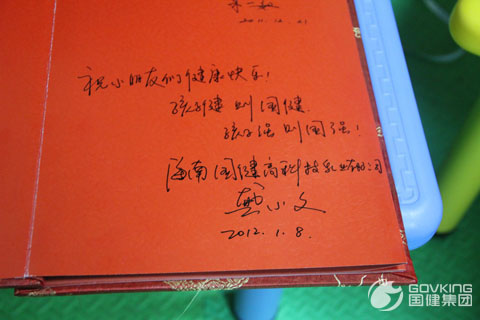 2011.12.21
祝小朋友们健康快乐!
孩子健 则国健.
孩子强则国强!
海南国健高科技乳业有限公司
小文
2012.1.8.
GOVKING
国健集团